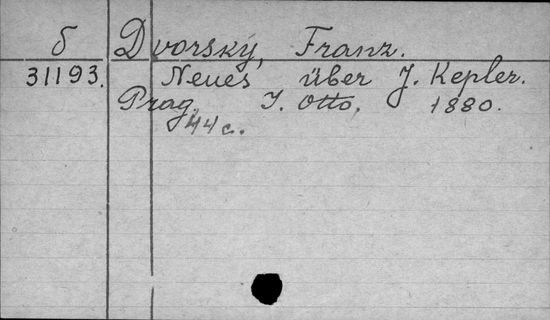 б Dvorský, Franz.
31193. Neues über J. Kepler.
Prag, J. Otto, 1880.
44 c.